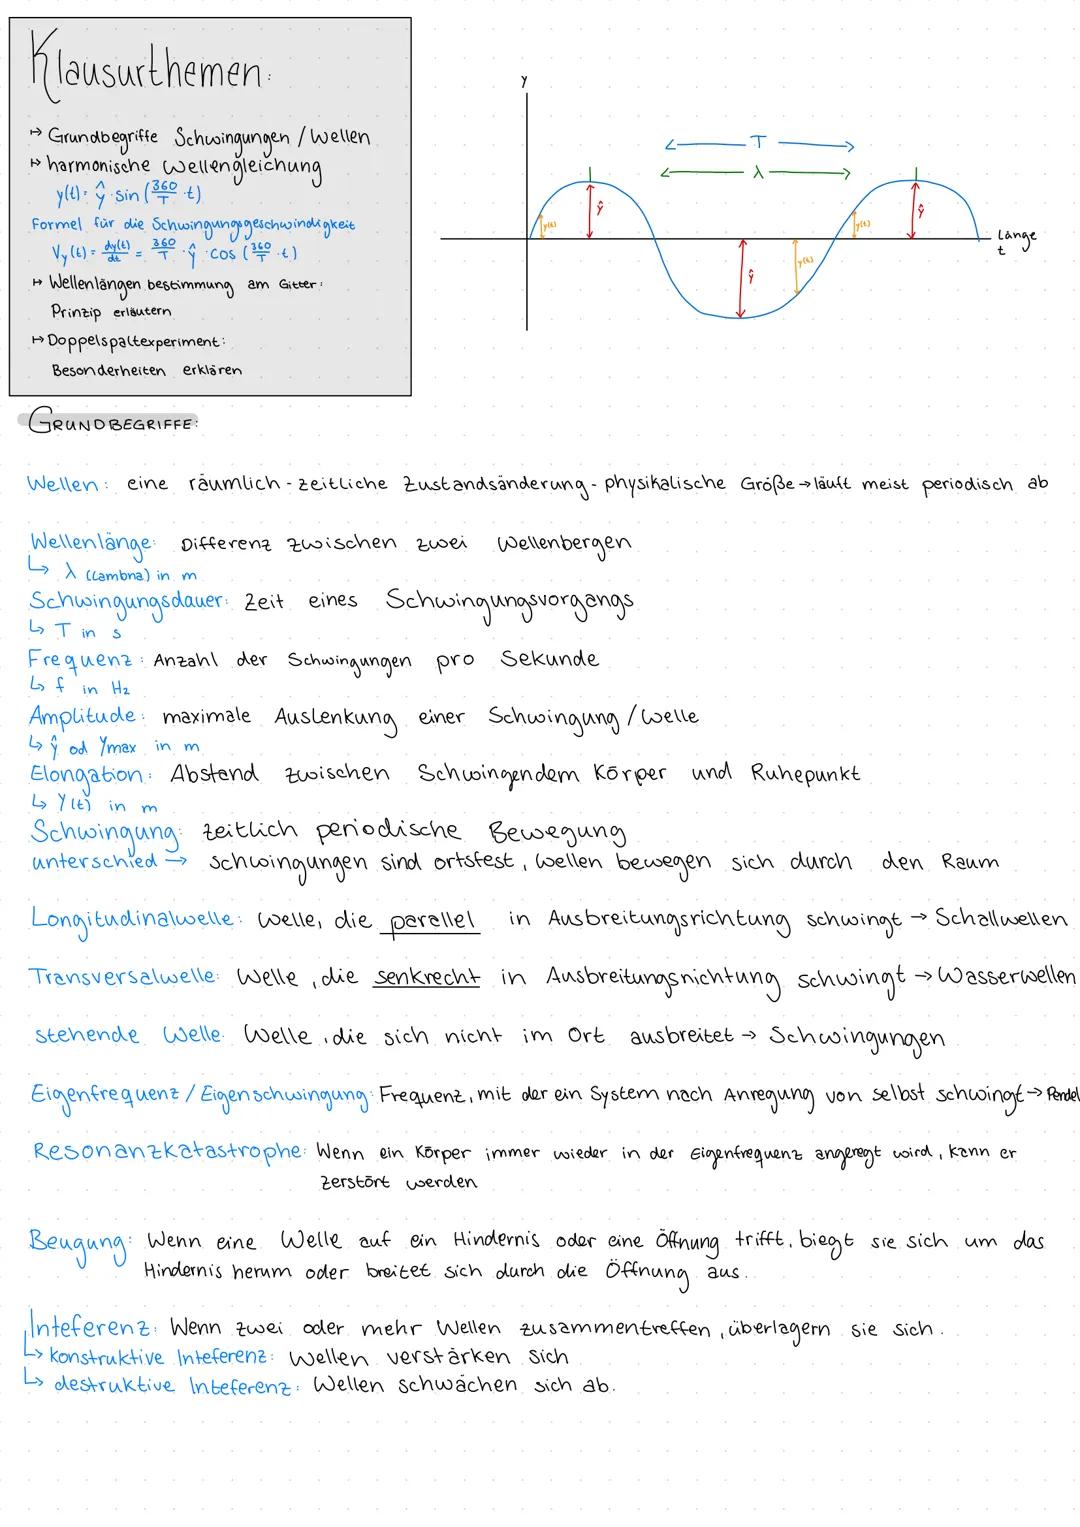 Klausurthemen:
↦ Grundbegriffe Schwingungen / Wellen
↦ harmonische Wellengleichung
y(t) = ŷ · sin (360/T · t)
Formel für die Schwingungsgeschwindigkeit
Vy(t) = dy(t)/dt = 360/T · ŷ · cos (360/T · t)
↦ Wellenlängenbestimmung am Gitter:
Prinzip erläutern
↦ Doppelspaltexperiment:
Besonderheiten erklären
y
T
λ
y(t)
ŷ
ŷ
y(t)
y(t)
ŷ
Länge
t
GRUNDBEGRIFFE:
Wellen: eine räumlich-zeitliche Zustandsänderung - physikalische Größe → läuft meist periodisch ab
Wellenlänge: Differenz zwischen zwei Wellenbergen
↳ λ (Lambna) in m
Schwingungsdauer: Zeit eines Schwingungsvorgangs
↳ T in s
Frequenz: Anzahl der Schwingungen pro Sekunde
↳ f in Hz
Amplitude: maximale Auslenkung einer Schwingung / Welle
↳ ŷ od Ymax in m
Elongation: Abstand zwischen Schwingendem Körper und Ruhepunkt
↳ Y(t) in m
Schwingung: zeitlich periodische Bewegung
unterschied → schwingungen sind ortsfest, Wellen bewegen sich durch den Raum
Longitudinalwelle: Welle, die parallel in Ausbreitungsrichtung schwingt → Schallwellen
Transversalwelle: Welle, die senkrecht in Ausbreitungsrichtung schwingt → Wasserwellen
stehende Welle: Welle, die sich nicht im Ort ausbreitet → Schwingungen
Eigenfrequenz / Eigenschwingung: Frequenz, mit der ein System nach Anregung von selbst schwingt → Pendel
Resonanzkatastrophe: Wenn ein Körper immer wieder in der Eigenfrequenz angeregt wird, kann er
zerstört werden
Beugung: Wenn eine Welle auf ein Hindernis oder eine Öffnung trifft, biegt sie sich um das
Hindernis herum oder breitet sich durch die Öffnung aus.
Inteferenz: Wenn zwei oder mehr Wellen zusammentreffen, überlagern sie sich.
↳ konstruktive Inteferenz: Wellen verstärken sich
↳ destruktive Inteferenz: Wellen schwächen sich ab.